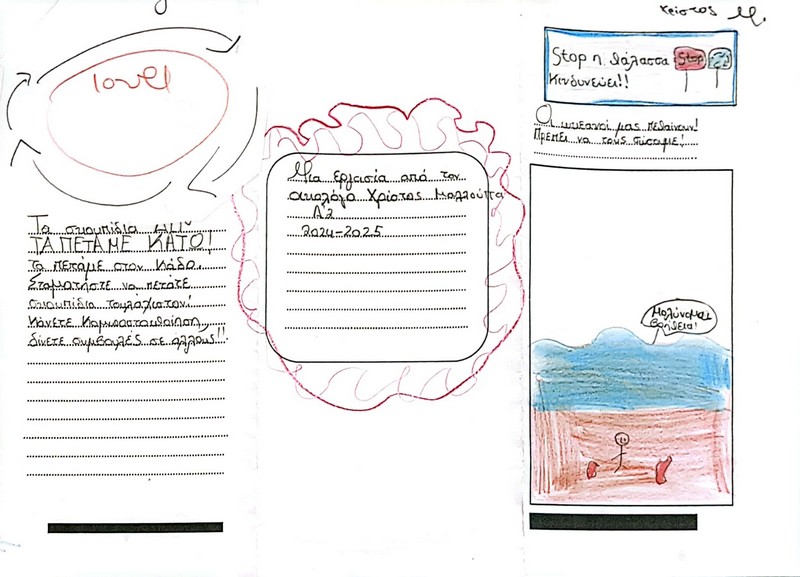 Τα σκουπίδια ΔΕΝ
ΤΑ ΠΕΤΑΜΕ ΚΑΤΩ!
Τα πετάμε στον κάδο.
Σταματήστε να πετάτε
σκουπίδια τουλάχιστον!
Κάνετε Κομποστοποίηση,
δίνετε συμβουλές σε άλλους!!
Μια εργασία από τον
οικολόγο Χρίστος Μαλλούππα
Α'2
2024-2025
Χρίστος Μ.
Stop η θάλασσα Stop
Κινδυνεύει!!
Οι ωκεανοί μας πεθαίνουν!
Πρέπει να τους σώσουμε!
Μολύνομαι
βοήθεια!